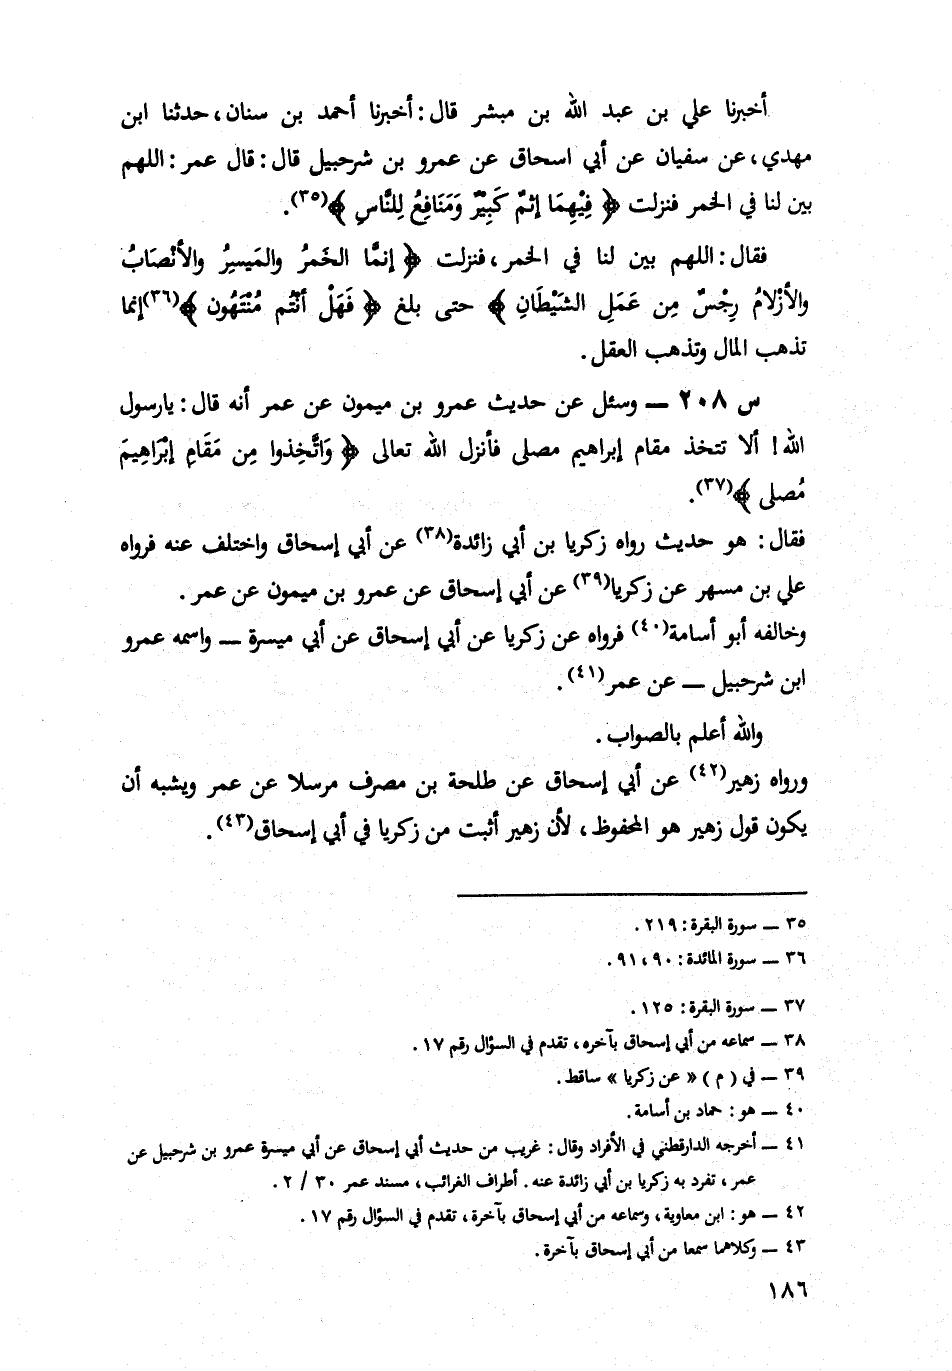 أخبرنا علي بن عبد الله بن مبشر قال: أخبرنا أحمد بن سنان، حدثنا ابن
مهدي، عن سفيان عن أبي اسحاق عن عمرو بن شرحبيل قال: قال عمر: اللهم
بين لنا في الخمر فنزلت ﴿ فِيْهِمَا إثمٌ كَبِيْرٌ وَمَنَافِعُ لِلنَّاسِ ﴾(٣٥).
فقال: اللهم بين لنا في الخمر، فنزلت ﴿ إنمَّا الخَمرُ والمَيسِرُ والأنْصَابُ
والأزْلامُ رِجْسٌ مِن عَمَلِ الشيْطَانِ ﴾ حتى بلغ ﴿ فَهَلْ أنْتُم مُنْتَهُون ﴾(٣٦) إنما
تذهب المال وتذهب العقل.
س ٢٠٨ ــ وسئل عن حديث عمرو بن ميمون عن عمر أنه قال: يارسول
الله! ألا تتخذ مقام إبراهيم مصلى فأنزل الله تعالى ﴿ وَاتَّخِذوا مِن مَقَامِ إبْرَاهِيمَ
مُصلى ﴾(٣٧).
فقال: هو حديث رواه زكريا بن أبي زائدة(٣٨) عن أبي إسحاق واختلف عنه فرواه
علي بن مسهر عن زكريا(٣٩) عن أبي إسحاق عن عمرو بن ميمون عن عمر.
وخالفه أبو أسامة(٤٠) فرواه عن زكريا عن أبي إسحاق عن أبي ميسرة ــ واسمه عمرو
ابن شرحبيل ــ عن عمر(٤١).
والله أعلم بالصواب.
ورواه زهير(٤٢) عن أبي إسحاق عن طلحة بن مصرف مرسلا عن عمر ويشبه أن
يكون قول زهير هو المحفوظ، لأن زهير أثبت من زكريا في أبي إسحاق(٤٣).
٣٥ ــ سورة البقرة: ٢١٩.
٣٦ ــ سورة المائدة: ٩٠، ٩١.
٣٧ ــ سورة البقرة: ١٢٥.
٣٨ ــ سماعه من أبي إسحاق بآخره، تقدم في السؤال رقم ١٧.
٣٩ ــ في ( م ) « عن زكريا » ساقط.
٤٠ ــ هو: حماد بن أسامة.
٤١ ــ أخرجه الدارقطني في الأفراد وقال: غريب من حديث أبي إسحاق عن أبي ميسرة عمرو بن شرحبيل عن
عمر، تفرد به زكريا بن أبي زائدة عنه. أطراف الغرائب، مسند عمر ٣٠ / ٢.
٤٢ ــ هو: ابن معاوية، وسماعه من أبي إسحاق بآخرة، تقدم في السؤال رقم ١٧.
٤٣ ــ وكلاهما سمعا من أبي إسحاق بآخرة.
١٨٦